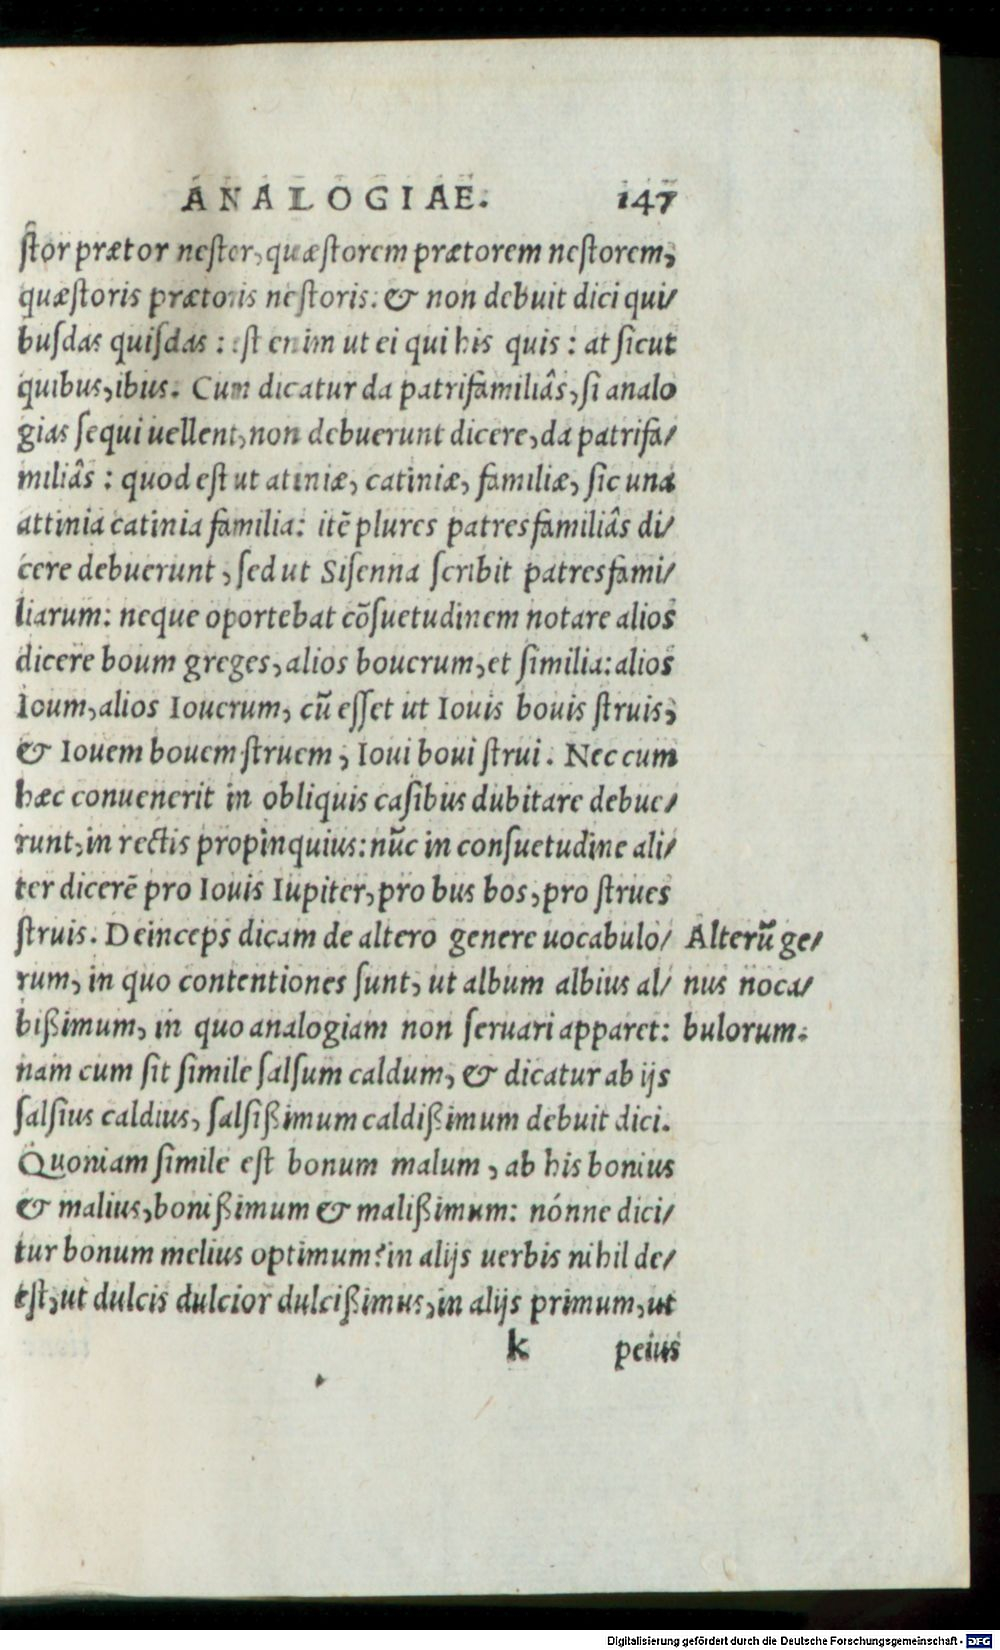 ANALOGIAE. 147
ſtor prætor neſtor, quæſtorem prætorem neſtorem,
quæſtoris prætoris neſtoris. & non debuit dici qui/
buſdas quiſdas : eſt enim ut ei qui his quis : at ſicut
quibus, ibus. Cum dicatur da patrifamiliâs, ſi analo
gias ſequi uellent, non debuerunt dicere, da patrifa/
miliâs : quod eſt ut atiniæ, catiniæ, familiæ, ſic una
attinia catinia familia: itẽ plures patresfamiliâs di/
cere debuerunt, ſed ut Siſenna ſcribit patresfami/
liarum: neque oportebat cõſuetudinem notare alios
dicere boum greges, alios bouerum, et ſimilia: alios
Ioum, alios Iouerum, cũ eſſet ut Iouis bouis ſtruis,
& Iouem bouem ſtruem, Ioui boui ſtrui. Nec cum
hæc conuenerit in obliquis caſibus dubitare debue/
runt, in rectis propinquius: nũc in conſuetudine ali/
ter dicerẽ pro Iouis Iupiter, pro bus bos, pro ſtrues
ſtruis. Deinceps dicam de altero genere uocabulo/
rum, in quo contentiones ſunt, ut album albius al/
bißimum, in quo analogiam non ſeruari apparet:
Alterũ ge/
nus noca/
bulorum.
nam cum ſit ſimile ſalſum caldum, & dicatur ab ijs
ſalſius caldius, ſalſißimum caldißimum debuit dici.
Quoniam ſimile eſt bonum malum, ab his bonius
& malius, bonißimum & malißimum: nónne dici/
tur bonum melius optimum? in alijs uerbis nihil de/
eſt, ut dulcis dulcior dulcißimus, in alijs primum, ut
k peius
Digitalisierung gefördert durch die Deutsche Forschungsgemeinschaft - DFG